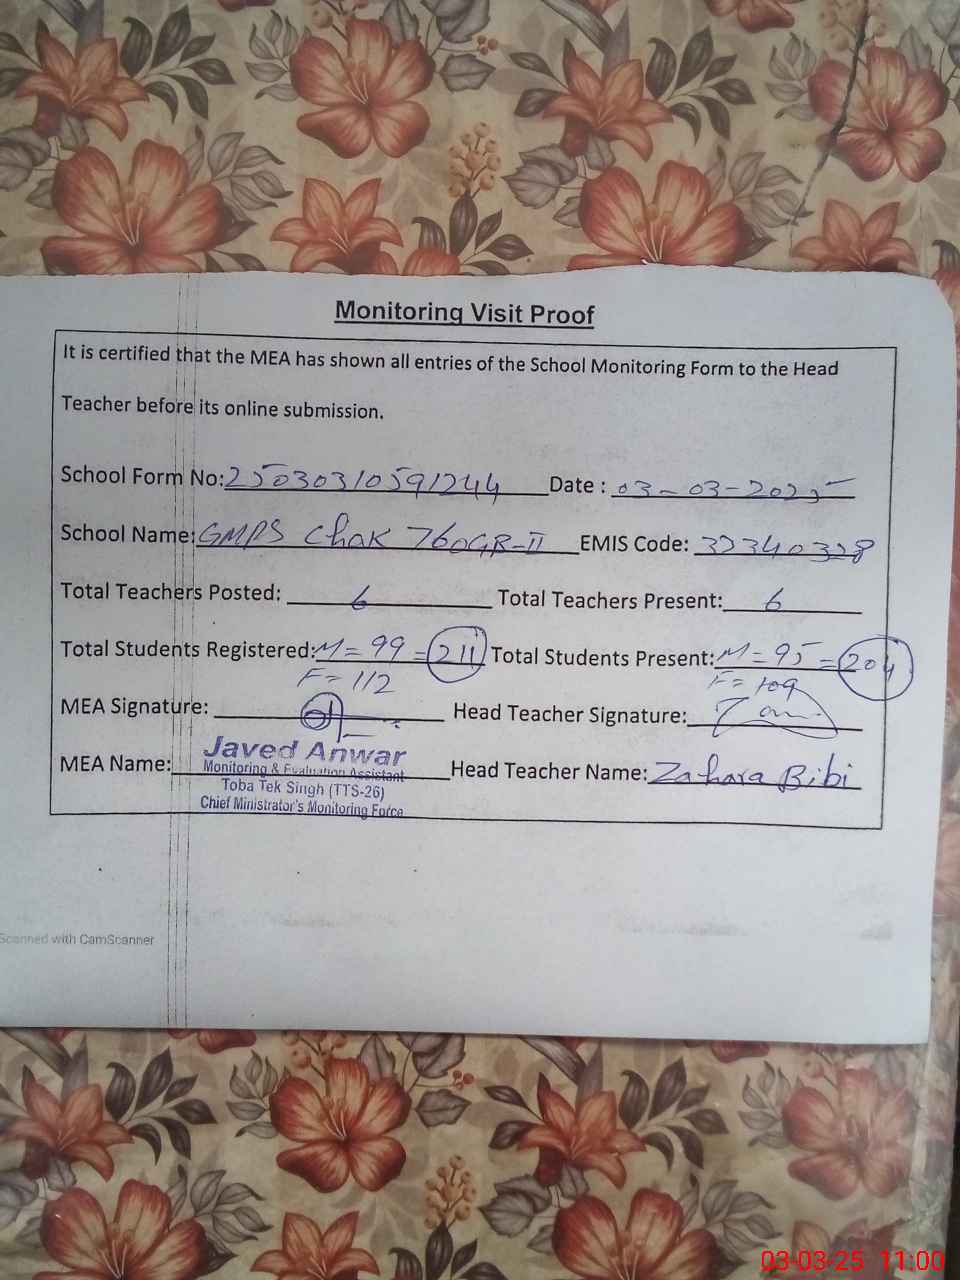 Monitoring Visit Proof
It is certified that the MEA has shown all entries of the School Monitoring Form to the Head
Teacher before its online submission.
School Form No: 25030310591244 Date : 03-03-2025
School Name: GMPS Chak 760GB-II EMIS Code: 33340328
Total Teachers Posted: 6 Total Teachers Present: 6
Total Students Registered: M = 99 = 211 Total Students Present: M = 95 = 204
F = 112 F = 109
MEA Signature: Head Teacher Signature:
Javed Anwar
MEA Name: Monitoring & Evaluation Assistant Head Teacher Name: Zahara Bibi
Toba Tek Singh (TTS-26)
Chief Minister's Monitoring Force
Scanned with CamScanner
03-03-25 11:00